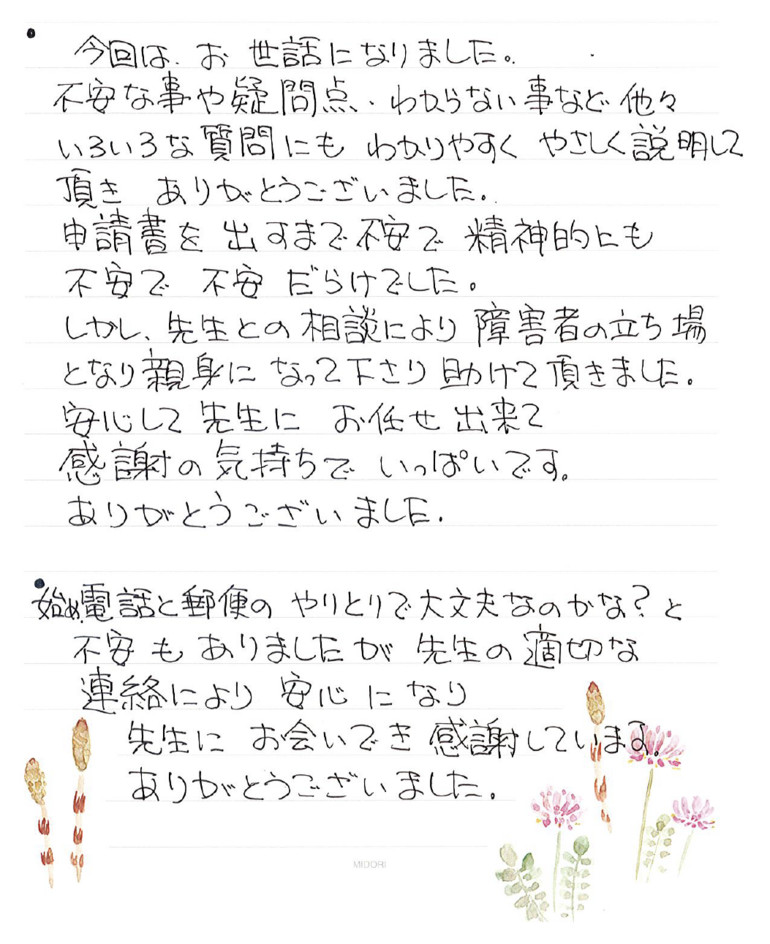 ・今回は、お世話になりました。
不安な事や疑問点・わからない事など他々
いろいろな質問にもわかりやすくやさしく説明して
頂きありがとうございました。
申請書を出すまで不安で精神的にも
不安で不安だらけでした。
しかし、先生との相談により障害者の立ち場
となり親身になって下さり助けて頂きました。
安心して先生にお任せ出来て
感謝の気持ちでいっぱいです。
ありがとうございました。
・始め電話と郵便のやりとりで大丈夫なのかな?と
不安もありましたが先生の適切な
連絡により安心になり
先生にお会いでき感謝しています。
ありがとうございました。
MIDORI